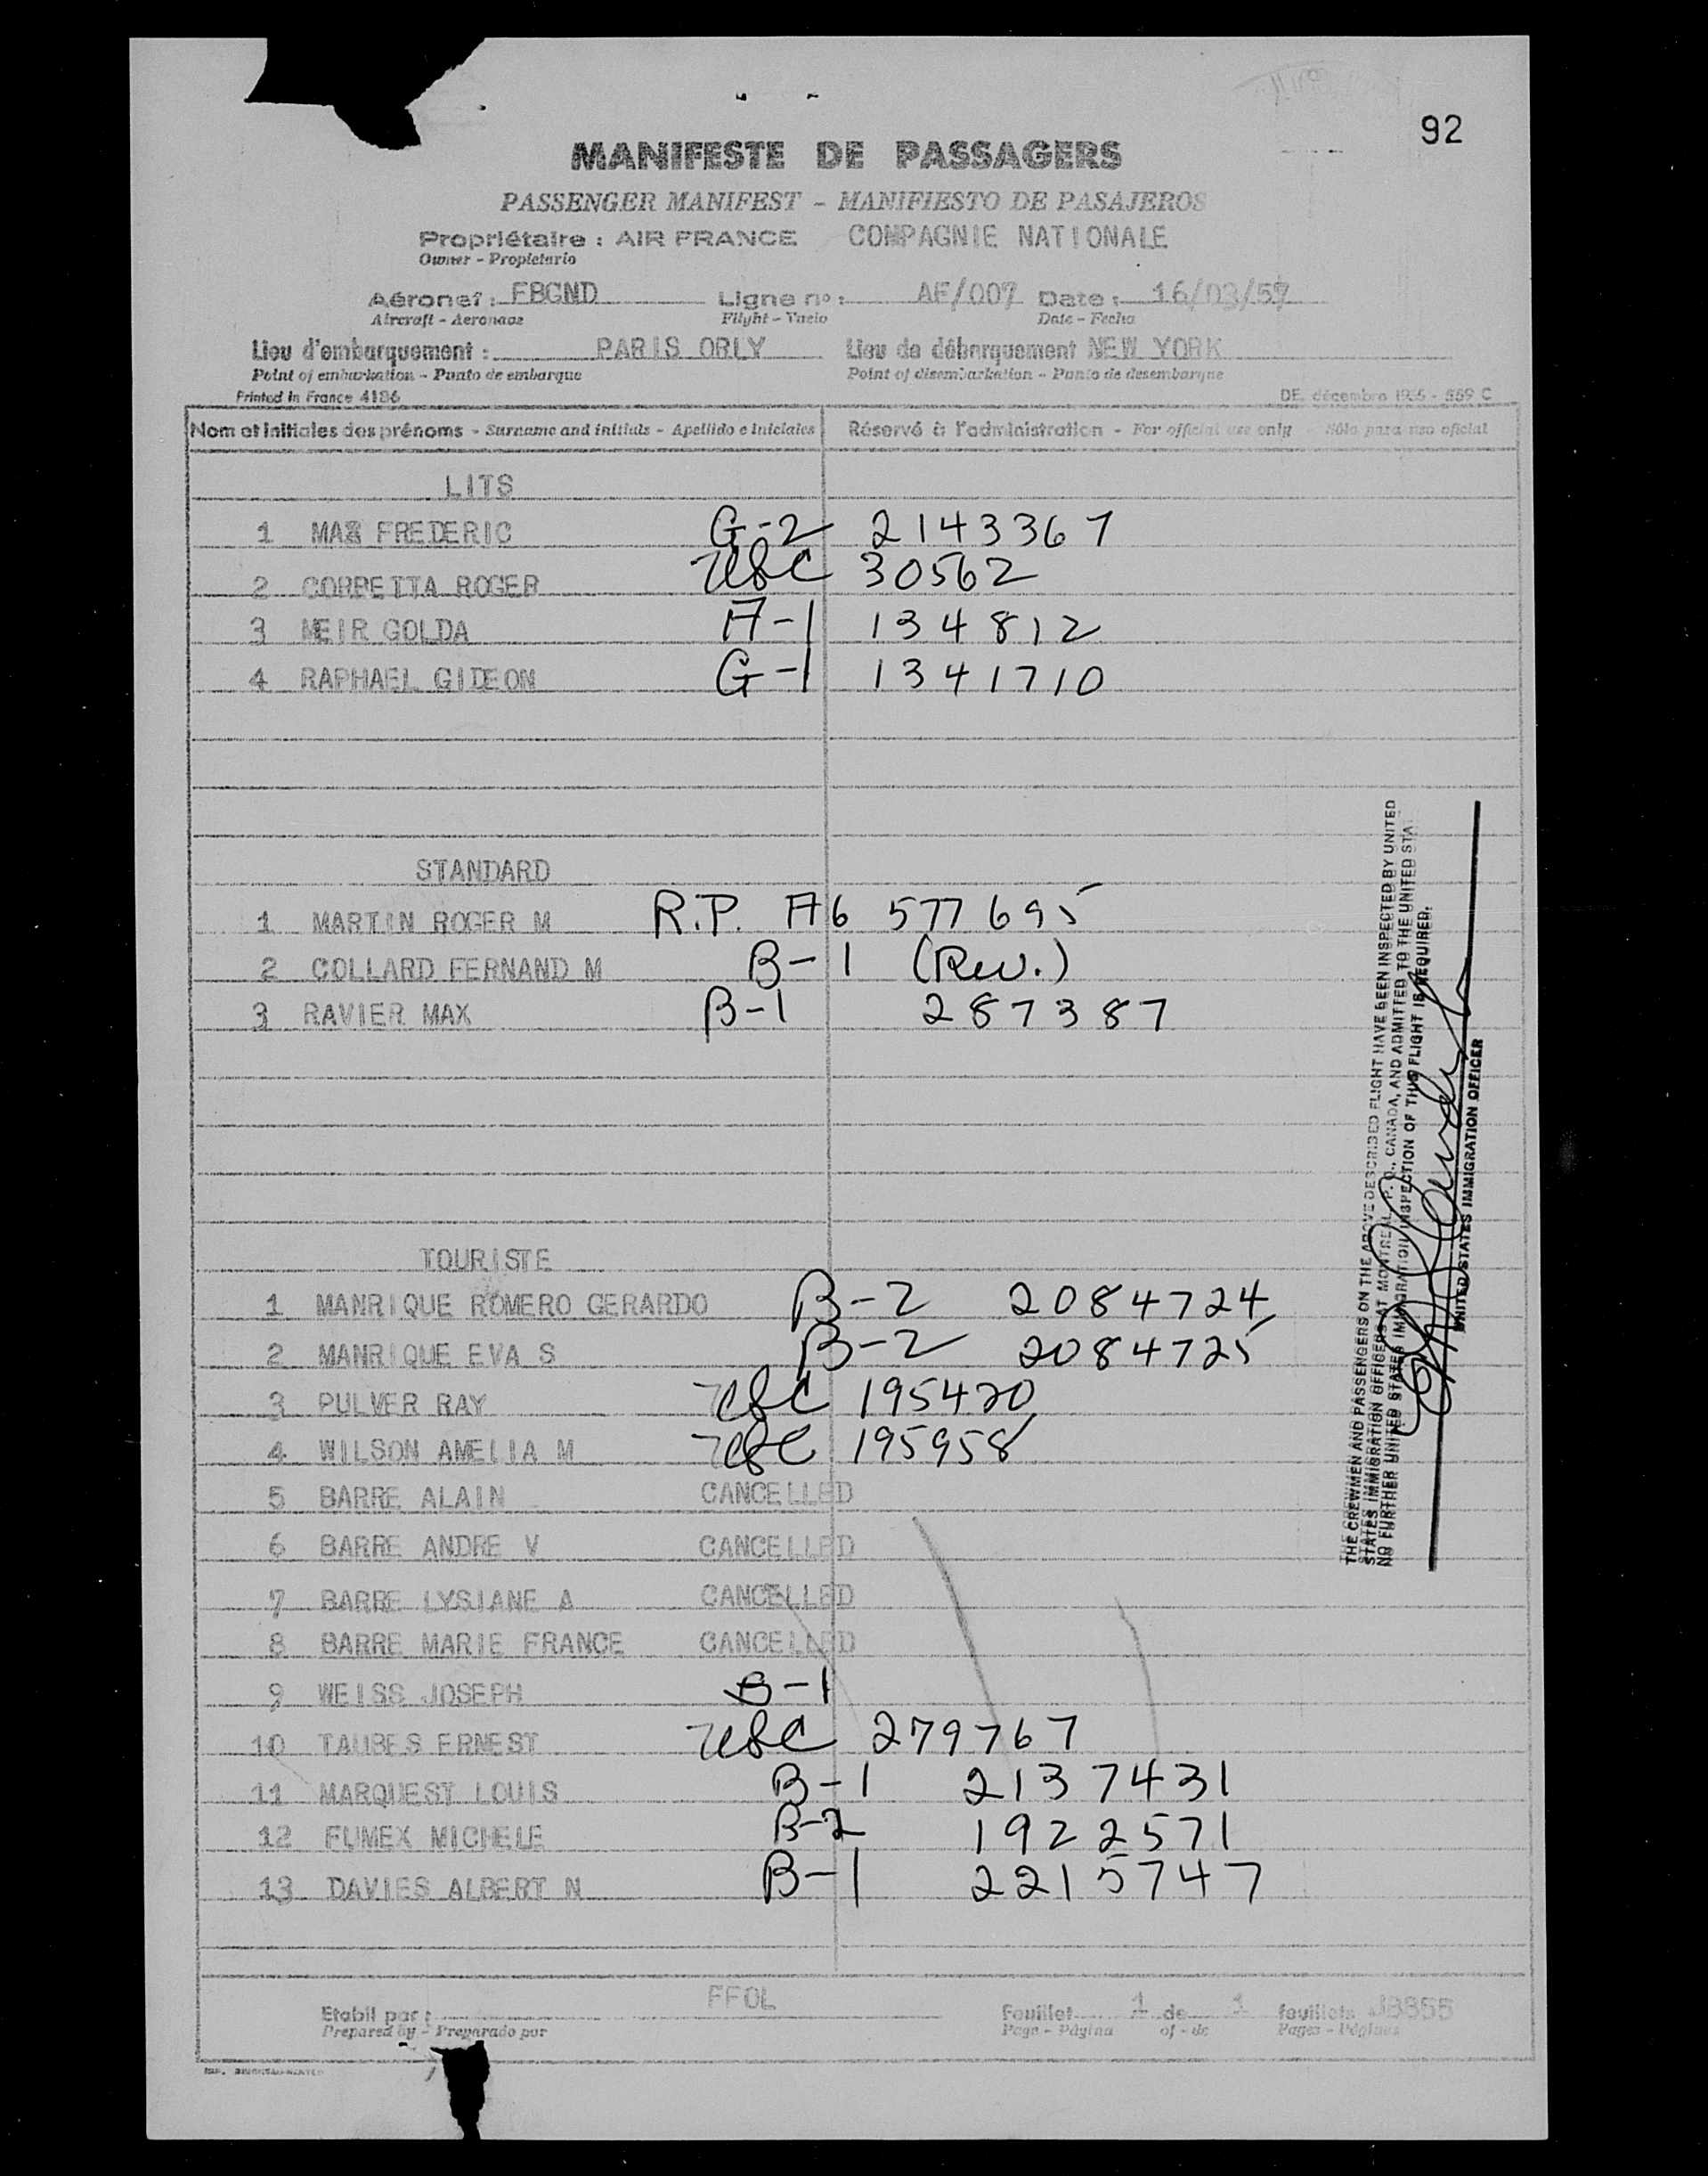 92
MANIFESTE DE PASSAGERS
PASSENGER MANIFEST - MANIFIESTO DE PASAJEROS
Propriétaire : AIR FRANCE COMPAGNIE NATIONALE
Owner - Propietario
Aéronef : FBGND Ligne n° : AF/007 Date : 16/03/57
Aircraft - Aeronaoe Flight - Vuelo Date - Fecha
Lieu d'embarquement : PARIS ORLY Lieu de débarquement NEW YORK
Point of embarkation - Punto de embarque Point of disembarkation - Punto de desembarque
Printed in France 4186 DE. décembre 1955 - 559 C
Nom et initiales des prénoms - Surname and initials - Apellido e iniciales Réservé à l'administration - For official use only - Sólo para uso oficial
LITS
1 FREDERIC G-2 2143367
2 CORBETTA ROGER USC 30562
3 MEIR GOLDA A-1 134812
4 RAPHAEL GIDEON G-1 1341710
STANDARD
1 MARTIN ROGER M R.P. A6 577695
2 COLLARD FERNAND M B-1 (Rev.)
3 RAVIER MAX B-1 287387
TOURISTE
1 MANRIQUE ROMERO GERARDO B-2 2084724
2 MANRIQUE EVA S B-2 2084725
3 PULVER RAY USC 195420
4 WILSON AMELIA M USC 195958
5 BARRE ALAIN CANCELLED
6 BARRE ANDRE V CANCELLED
7 BARRE LYSIANE A CANCELLED
8 BARRE MARIE FRANCE CANCELLED
9 WEISS JOSEPH B-1
10 TAUBES ERNEST USC 279767
11 MARQUEST LOUIS B-1 2137431
12 FUMEX MICHELE B-2 1922571
13 DAVIES ALBERT N B-1 2215747
THE CREWMEN AND PASSENGERS ON THE ABOVE DESCRIBED FLIGHT HAVE BEEN INSPECTED BY UNITED
STATES IMMIGRATION OFFICERS AT MONTREAL, P. Q., CANADA, AND ADMITTED TO THE UNITED STA
NO FURTHER UNITED STATES IMMIGRATION INSPECTION OF THIS FLIGHT IS REQUIRED.
UNITED STATES IMMIGRATION OFFICER
Etabli par : FFOL Feuillet 1 de 1 feuillets
Prepared by - Preparado por Page - Página of - de Pages - Páginas